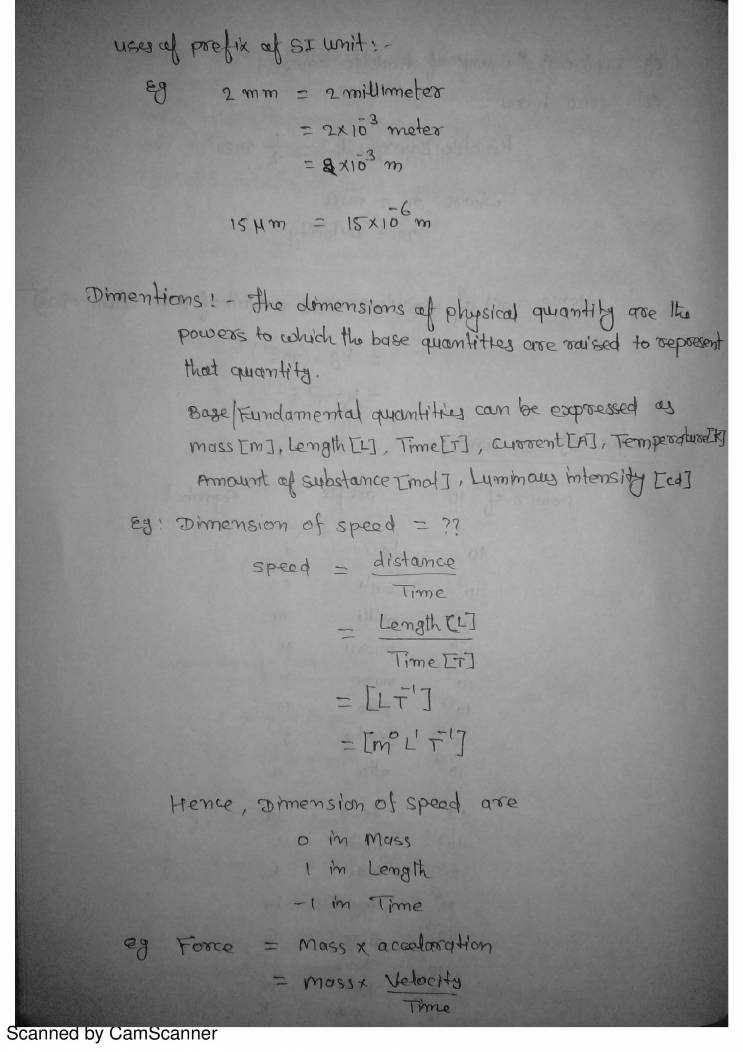 uses of prefix of SI unit :-
Eg 2 mm = 2 millimeter
= 2×10⁻³ meter
= 2×10⁻³ m
15 μm = 15×10⁻⁶ m
Dimentions ! - The dimensions of physical quantity are the
powers to which the base quantities are raised to represent
that quantity.
Base/Fundamental quantities can be expressed as
mass [m], Length [L], Time [T], Current [A], Temperature [K]
Amount of substance [mol], Luminous intensity [cd]
Eg : Dimension of speed = ??
speed = distance
Time
= Length [L]
Time [T]
= [LT⁻¹]
= [m⁰ L¹ T⁻¹]
Hence, Dimension of speed are
0 in Mass
1 in Length
-1 in Time
eg Force = Mass × acceleration
= mass × Velocity
Time
Scanned by CamScanner